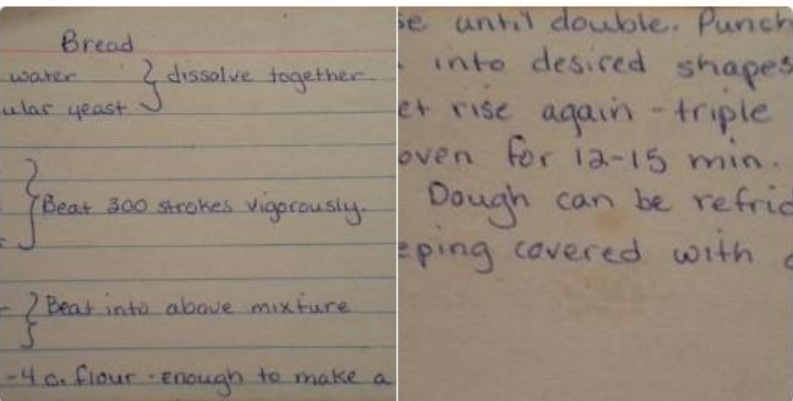 Bread
water } dissolve together
ular yeast
Beat 300 strokes vigorously.
Beat into above mixture
-4 c. flour - enough to make a
se until double. Punch
into desired shapes
et rise again - triple
oven for 12-15 min.
Dough can be refrig
eping covered with